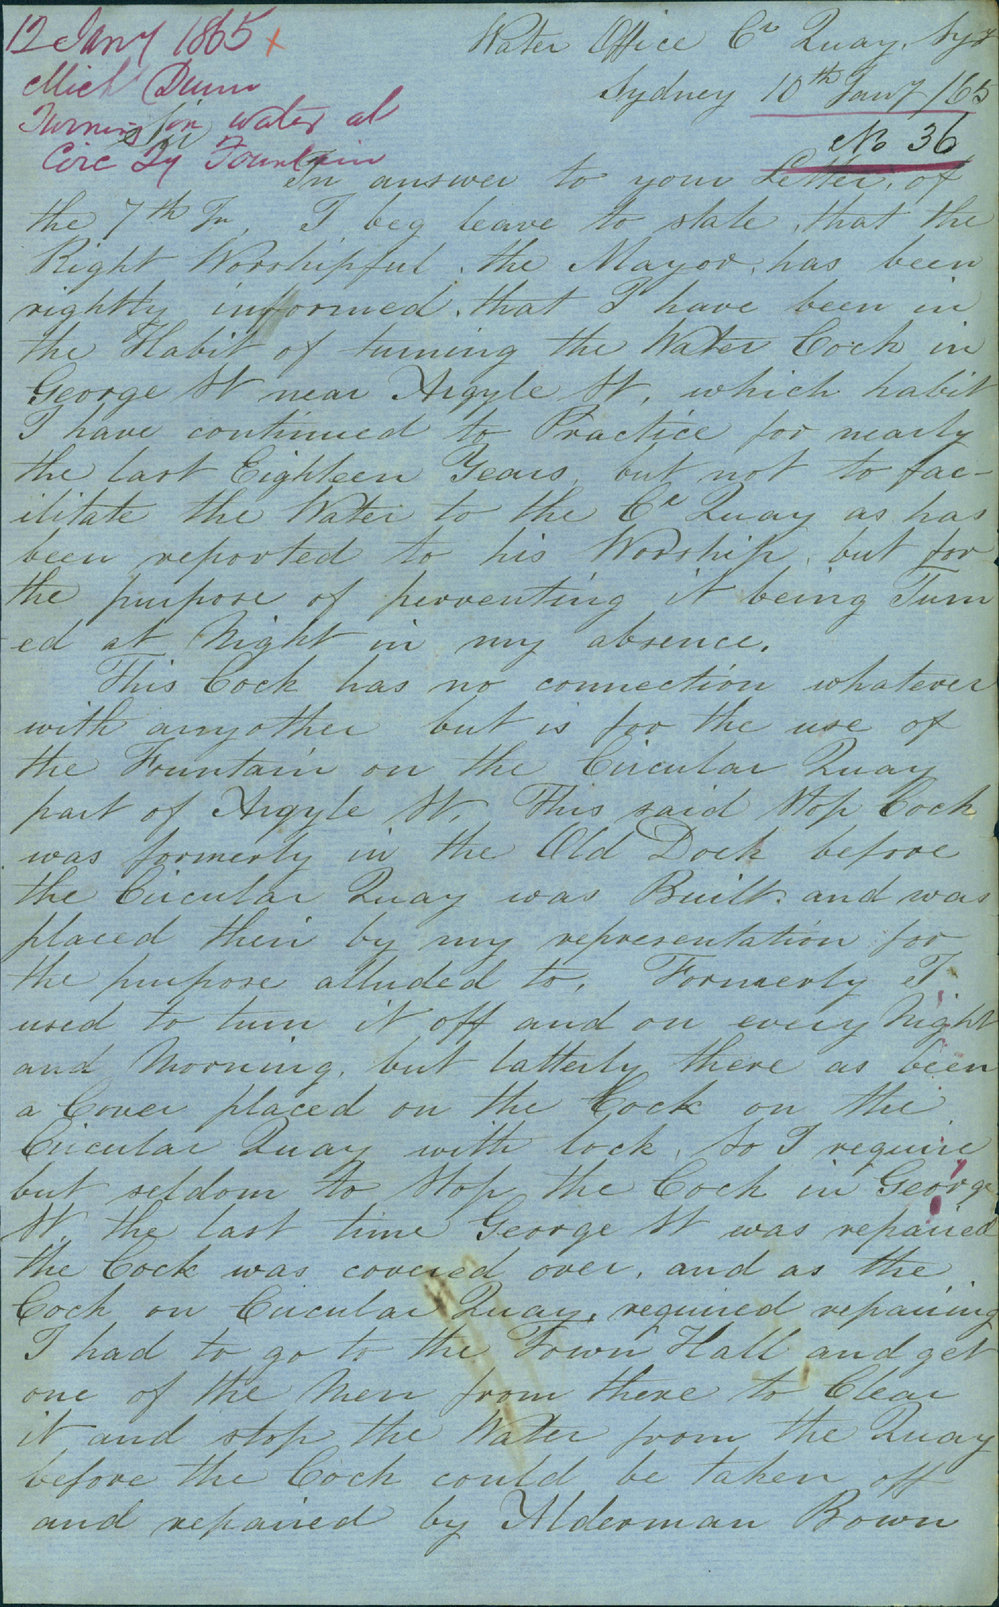 12 Jany 1865 x
Mich Dunn
Turning on water at
Circ Qy Fountain
Water Office Cr Quay, Syd
Sydney 10th Jany /65
No 36
Sir
In answer to your Letter, of
the 7th In, I beg leave to state, that the
Right Worshipful, the Mayor, has been
rightly informed, that I have been in
the Habit of turning the Water Cock in
George St near Argyle St, which habit
I have continued to Practice for nearly
the last Eighteen Years, but not to fac-
ilitate the Water to the Cr Quay as has
been reported to his Worship, but for
the purpose of perventing it being Turn
ed at Night in my absence.
This Cock has no connection whatever
with anyother but is for the use of
the Fountain on the Circular Quay
part of Argyle St. This said Stop Cock
was formerly in the Old Dock before
the Circular Quay was Built. and was
placed their by my representation for
the purpose alluded to. Formerly I
used to turn it off and on every Night
and Morning. but latterly there as been
a Cover placed on the Cock on the
Circular Quay with lock. So I require
but seldom to Stop the Cock in George
St. the last time George St was repaired
the Cock was covered over. and as the
Cock on Circular Quay, required repairing
I had to go to the Town Hall and get
one of the Men from there to Clear
it and stop the Water from the Quay
before the Cock could be taken off
and repaired by Alderman Bown